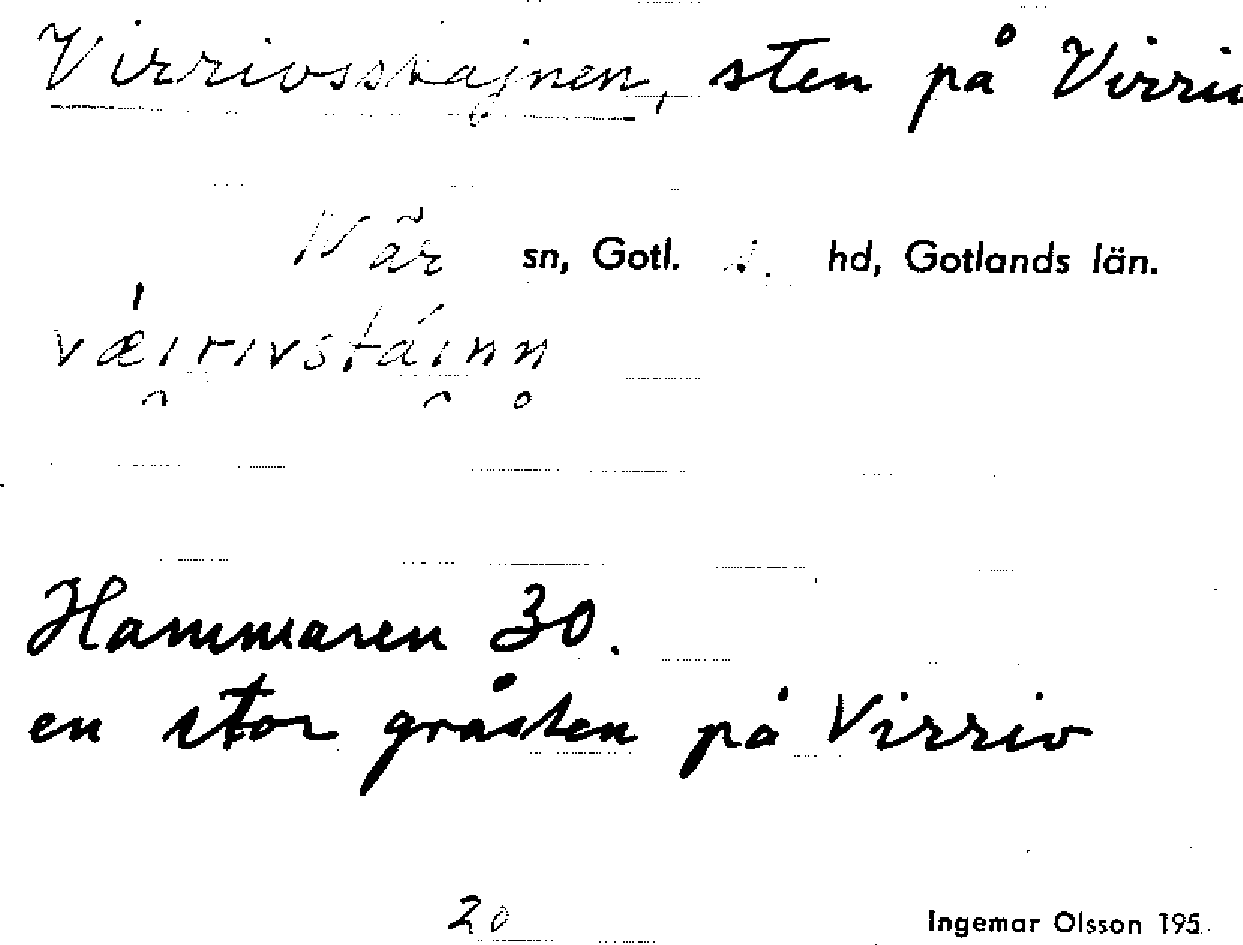 Virrivsstajnen, sten på Virriv
När sn, Gotl. s. hd, Gotlands län.
vǽi̯rivstái̯nn̥
Hammaren 30.
en stor gråsten på Virriv
20
Ingemar Olsson 195